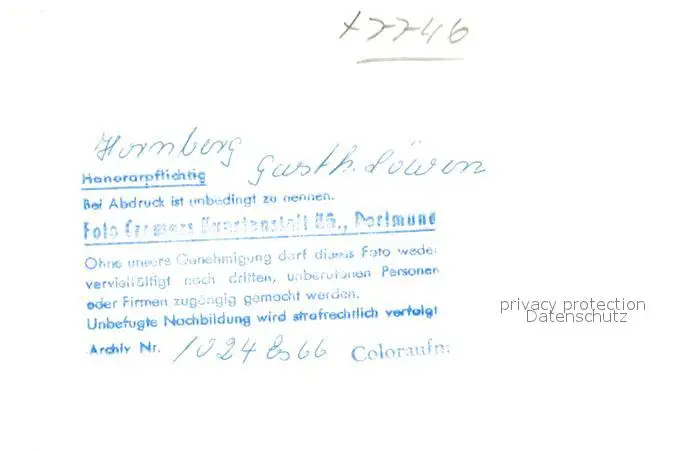 Hornberg Gasth. Löwen
Honorarpflichtig
Bei Abdruck ist unbedingt zu nennen.
Foto Cramers Kunstanstalt KG., Dortmund
Ohne unsere Genehmigung darf dieses Foto weder
vervielfältigt noch dritten, unberufenen Personen
oder Firmen zugängig gemacht werden.
Unbefugte Nachbildung wird strafrechtlich verfolgt
Archiv Nr. 1024 66 Coloraufn.
privacy protection
Datenschutz